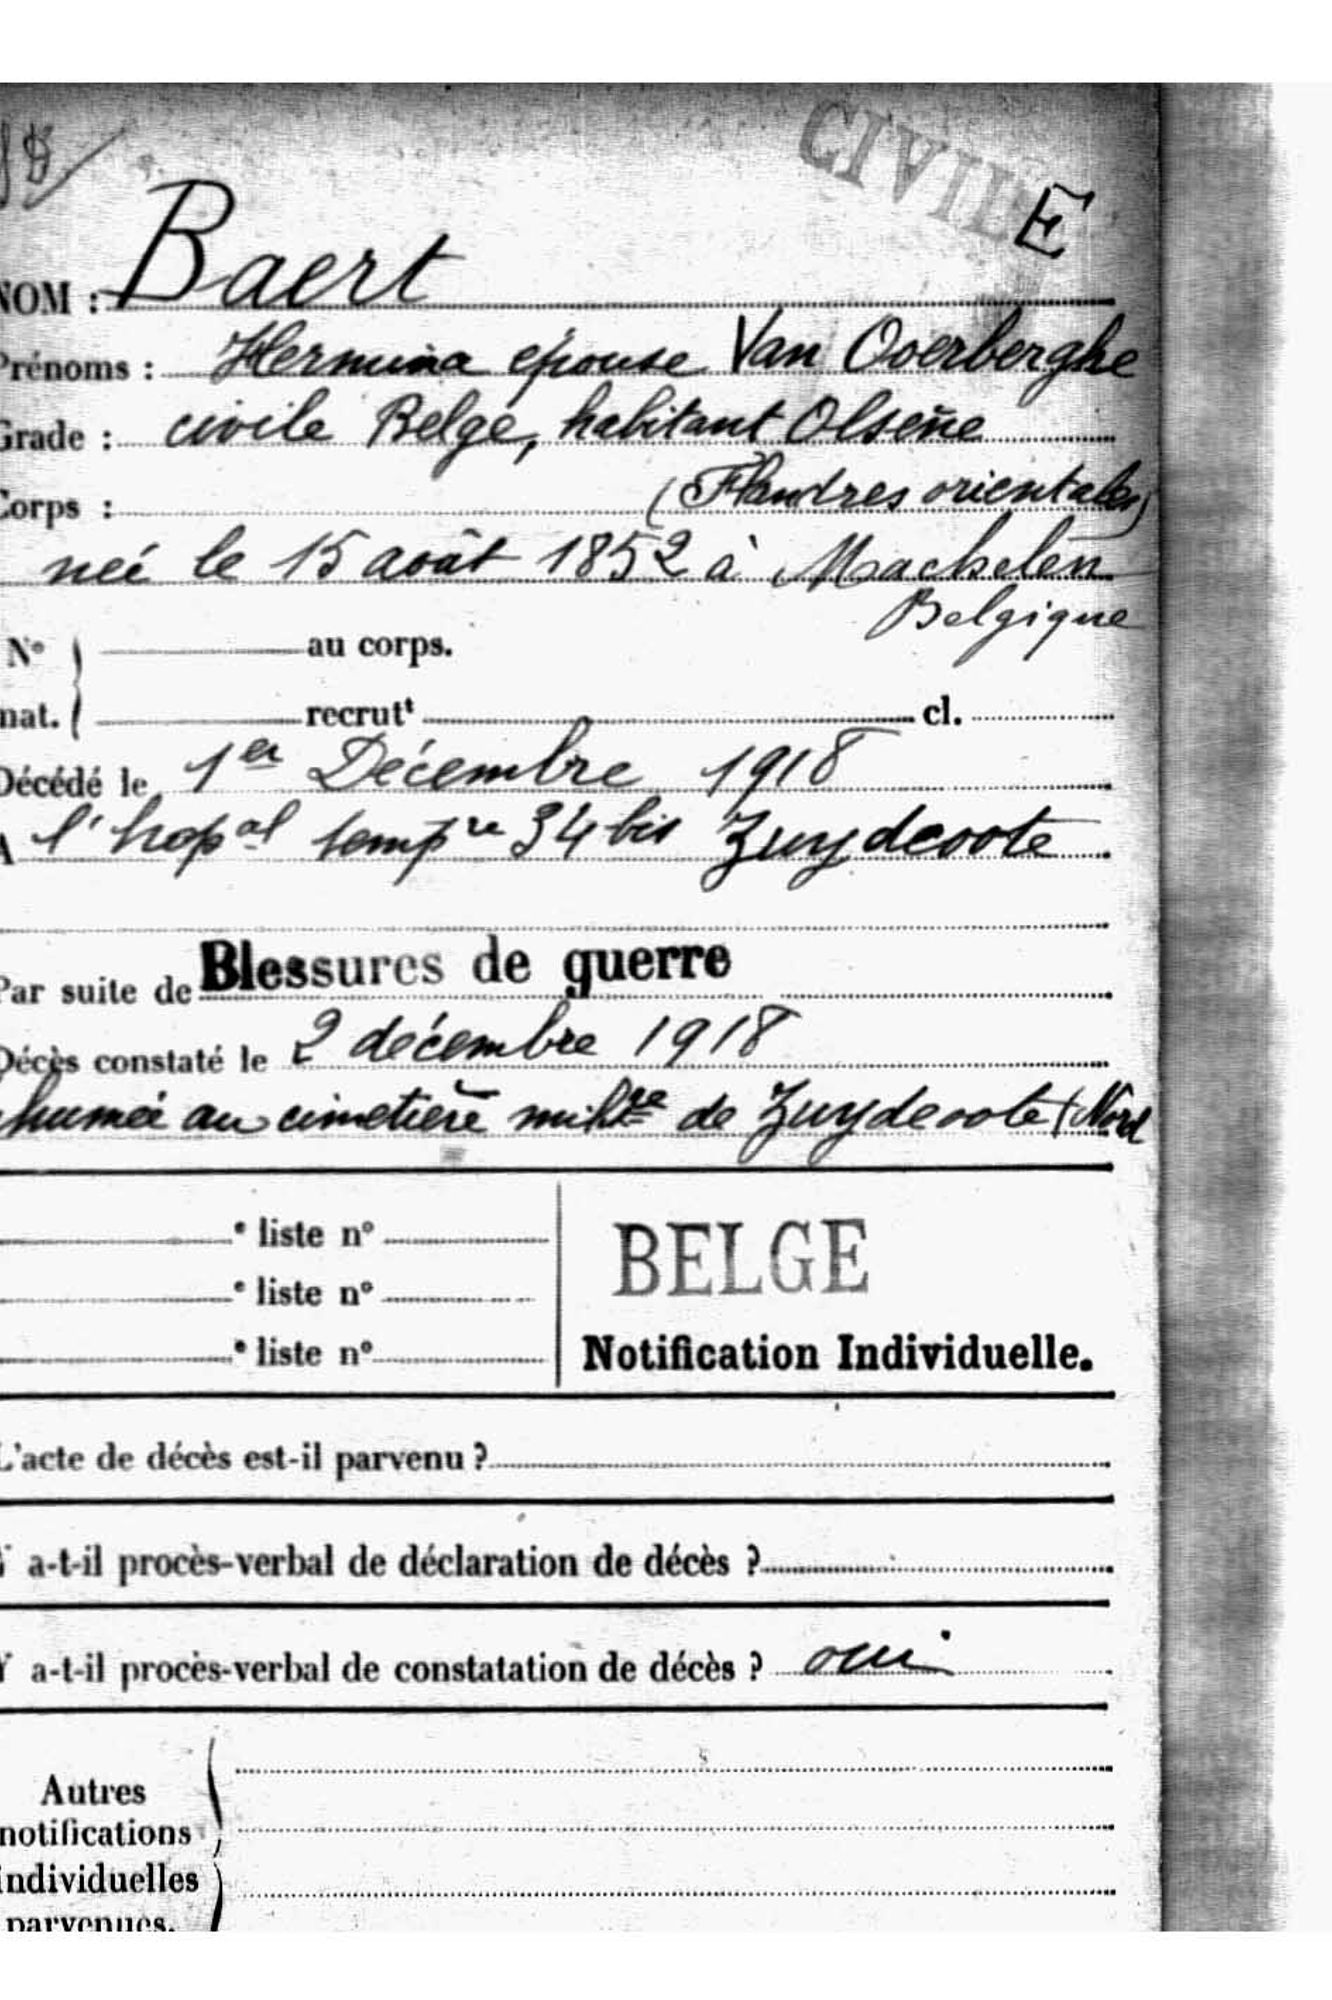 CIVIL E
NOM : Baert
Prénoms : Hermina épouse Van Overberghe
Grade : civile Belge, habitant Olsene
Corps : (Flandres orientales)
née le 15 août 1852 à Machelen
Belgique
N° au corps.
mat. recrutt cl.
Décédé le 1er Décembre 1918
A l'hopal tempre 34 bis Zuydcoote
Par suite de Blessures de guerre
Décès constaté le 2 décembre 1918
humée au cimetière milre de Zuydcoote (Nord
liste n°
liste n°
liste n°
BELGE
Notification Individuelle.
L'acte de décès est-il parvenu ?
a-t-il procès-verbal de déclaration de décès ?
Y a-t-il procès-verbal de constatation de décès ? oui
Autres
notifications
individuelles
parvenues.